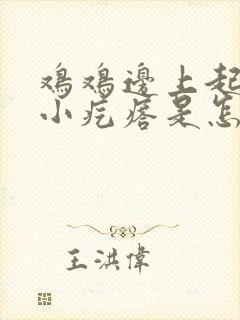 鸡鸡邊上起
小疙瘩是怎
王洪偉